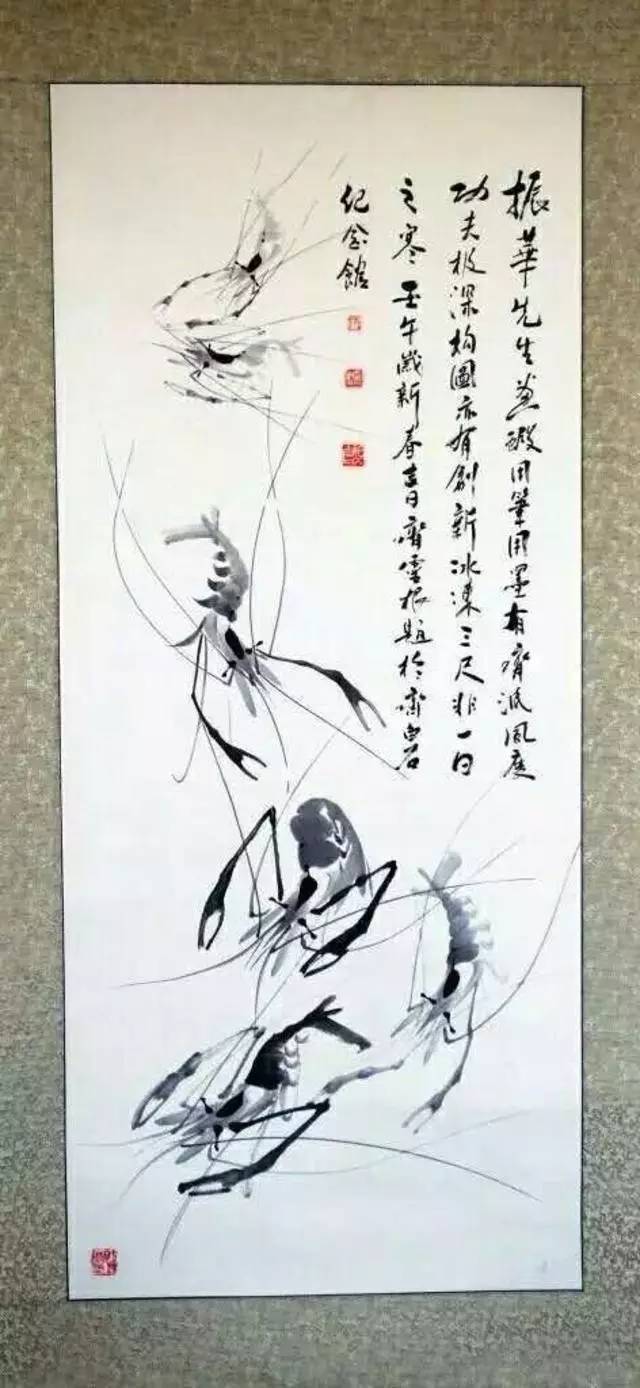 振華先生画蝦用筆用墨有齊派風度
功夫极深构圖亦有創新冰凍三尺非一日
之寒壬午歲新春吉日齊雪根題於齊白石
纪念館